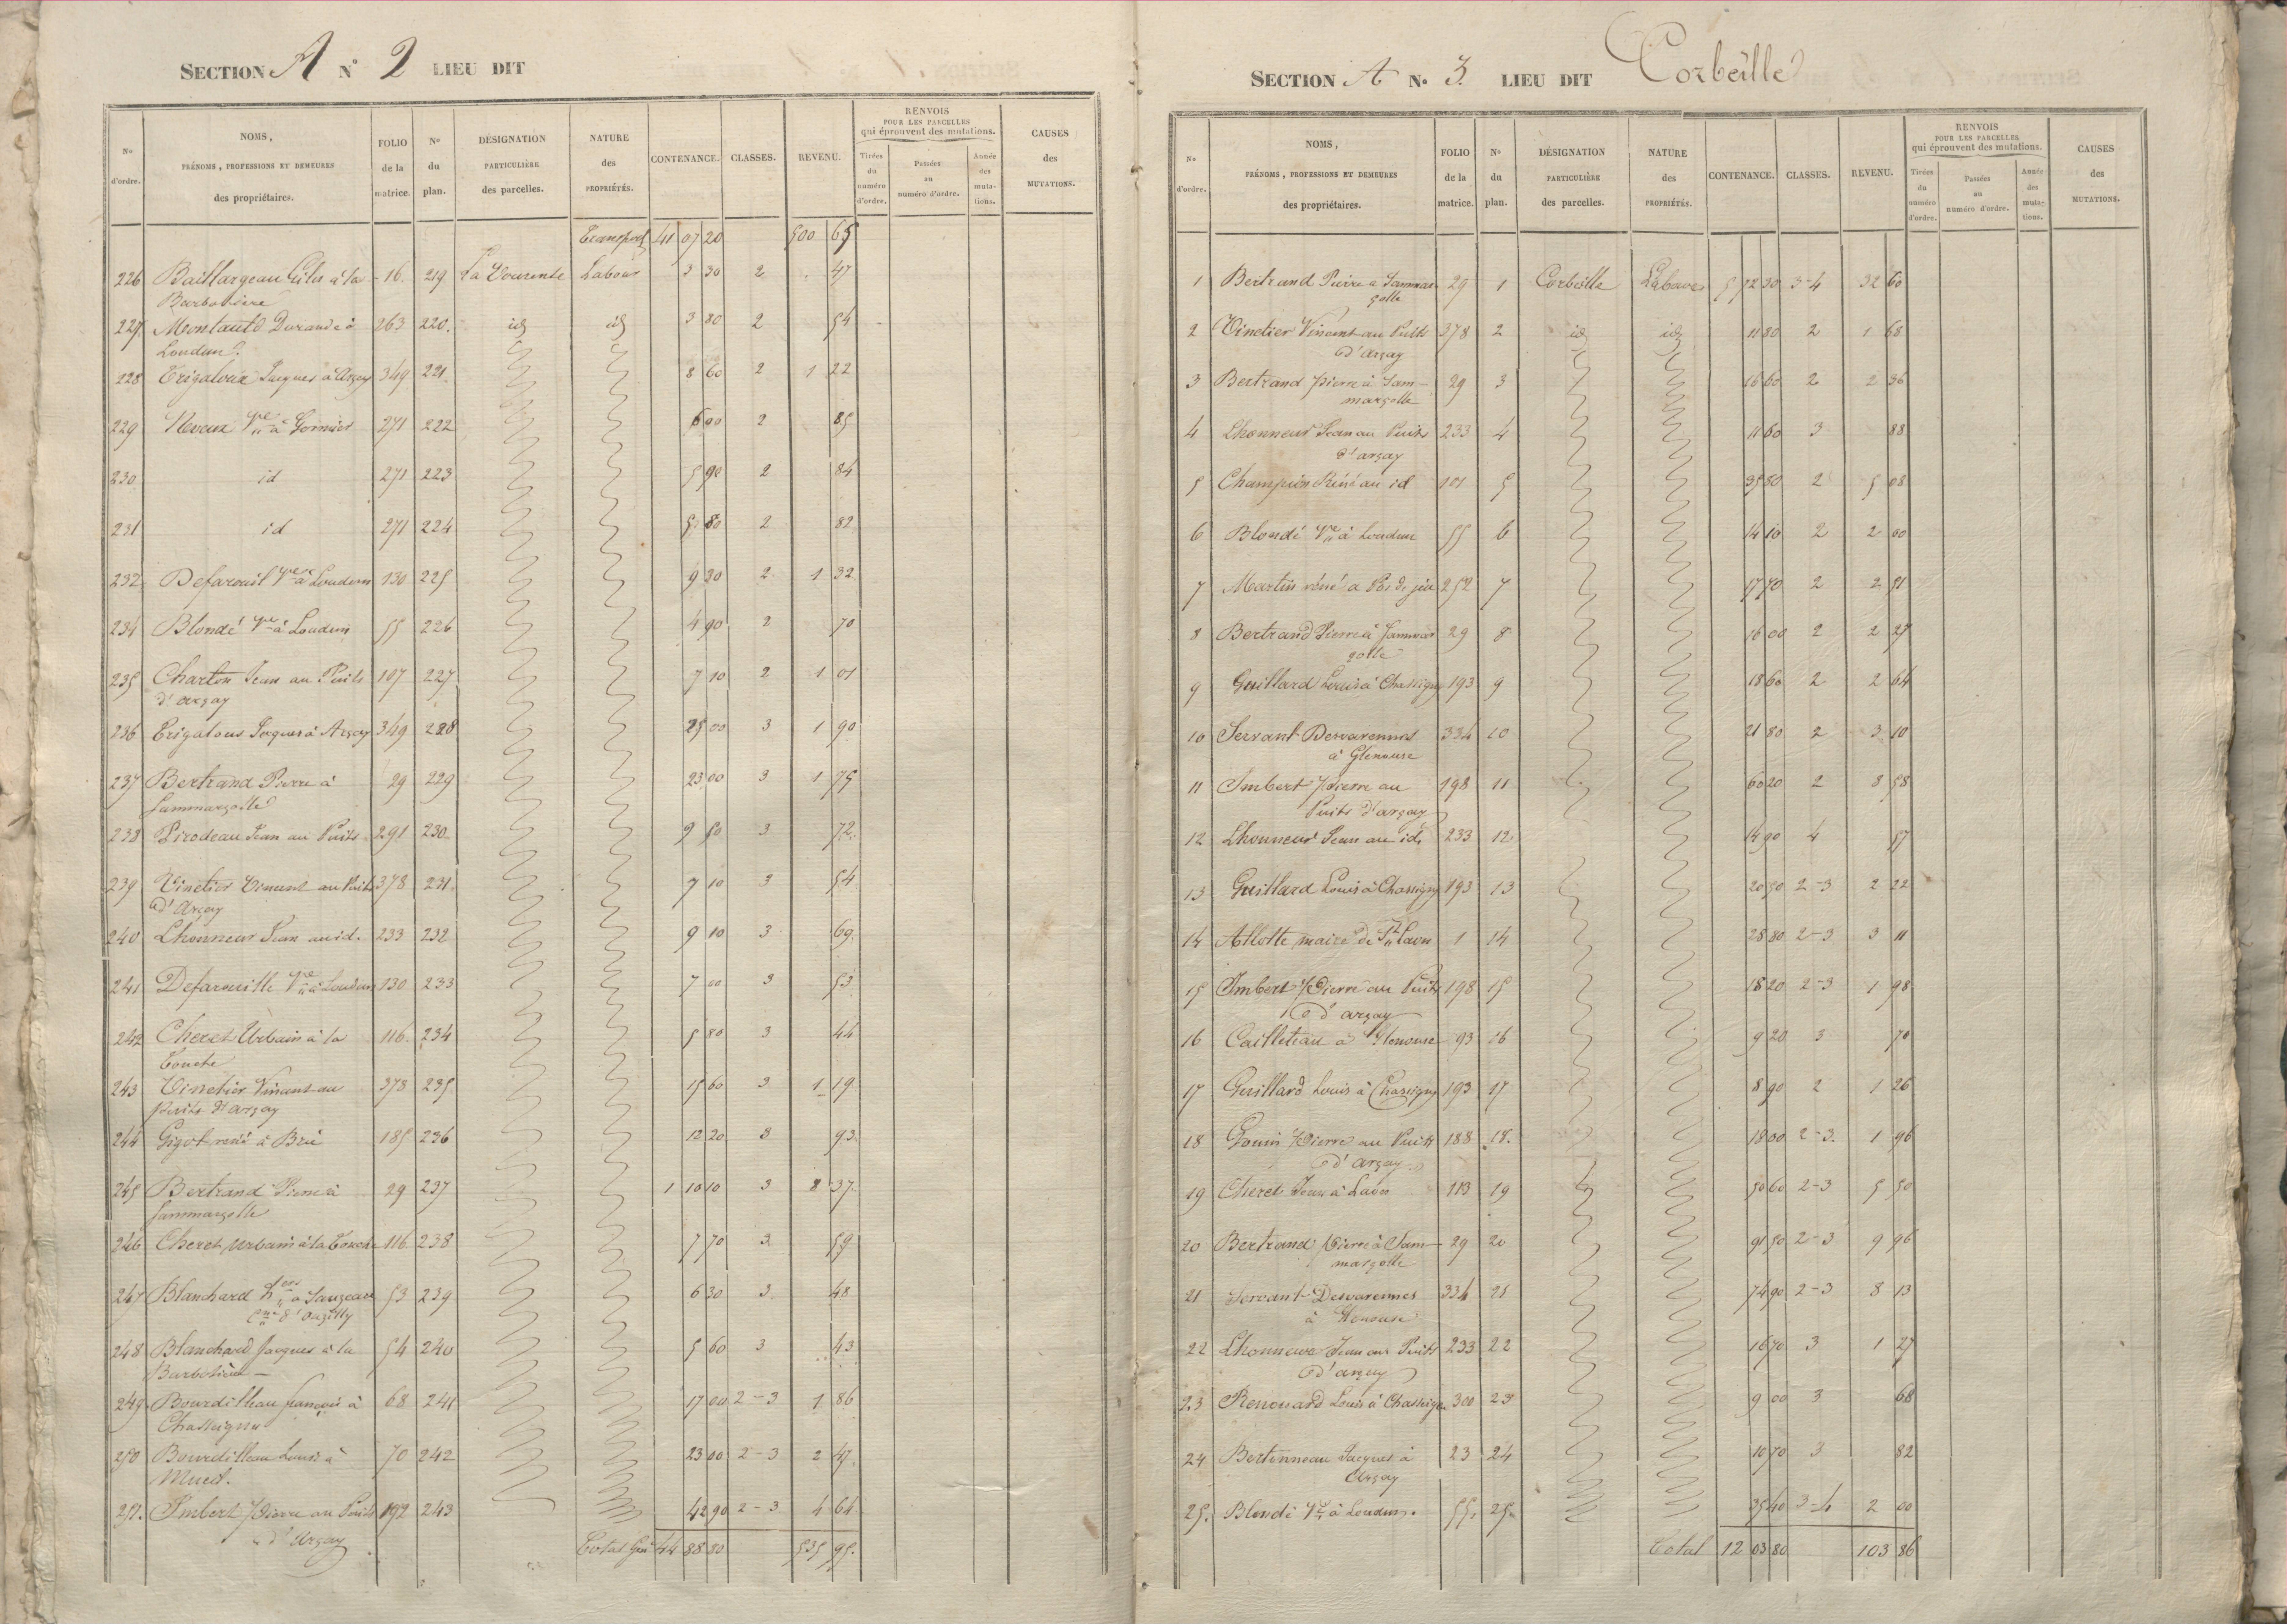 SECTION A N° 2 LIEU DIT
N° d'ordre. NOMS, PRÉNOMS, PROFESSIONS ET DEMEURES des propriétaires. FOLIO de la matrice. N° du plan. DÉSIGNATION PARTICULIÈRE des parcelles. NATURE des PROPRIÉTÉS. CONTENANCE. CLASSES. REVENU. RENVOIS POUR LES PARCELLES qui éprouvent des mutations. Tirées du numéro d'ordre. Passées au numéro d'ordre. Année des mutations. CAUSES des MUTATIONS.
Transport 41 07 20 500 65
226 Baillargeau Gilles à la 16. 219 La Tourente Labour 3 30 2 47
Barbotière
227 Montault Durand à 263 220. id id 3 80 2 54
Loudun.
228 Trigaloux Jacques à Arçay 349 221. 8 60 2 1 22
229 Neveux Ve à Gonnier 271 222 6 00 2 85
230 id 271 223 5 90 2 84
231 id 271 224 5 80 2 82
232 Defarouil Ve à Loudun 130 225 9 30 2 1 32
234 Blondé Ve à Loudun 55 226 4 90 2 70
235 Charton Jean au Puits 107 227 7 10 2 1 01
d'arçay
236 Trigaloux Jacques à Arçay 349 228 25 00 3 1 90
237 Bertrand Pierre à 29 229 23 00 3 1 75
Sammarçolle
238 Pirodeau Jean au Puits 291 230. 9 50 3 72.
239 Vinetier Vincent au Puits 378 231. 7 10 3 54
d'Arçay
240 Lhonneur Jean au id. 233 232 9 10 3 69.
241 Defarouille Ve à Loudun 130 233 7 00 3 53
242 Cheret Urbain à la 116. 234 5 80 3 44
Touche
243 Vinetier Vincent au 378 235 15 60 3 1 19
Puits d'arçay
244 Gigot rené à Brie 185 236 12 20 3 93.
245 Bertrand Pierre à 29 237 1 10 10 3 8 37.
Sammarçolle
246 Cheret Urbain à la Touche 116 238 7 70 3 59
247 Blanchard hers à Sauzeau 53 239 6 30 3. 48
Cne d'ouzilly
248 Blanchard Jacques à la 54 240 5 60 3 43
Barbotière
249 Bourdilleau françois à 68 241 17 00 2-3 1 86
Chasseignes
250 Bourdilleau Louis à 70 242 23 00 2-3 2 47.
Mued.
251. Imbert Pierre au Puits 192 243 42 90 2-3 4 64
d'Arçay
Total Gal 44 88 80 535 95.
SECTION A N° 3. LIEU DIT Corbeille
N° d'ordre. NOMS, PRÉNOMS, PROFESSIONS ET DEMEURES des propriétaires. FOLIO de la matrice. N° du plan. DÉSIGNATION PARTICULIÈRE des parcelles. NATURE des PROPRIÉTÉS. CONTENANCE. CLASSES. REVENU. RENVOIS POUR LES PARCELLES qui éprouvent des mutations. Tirées du numéro d'ordre. Passées au numéro d'ordre. Année des mutations. CAUSES des MUTATIONS.
1 Bertrand Pierre à Sammar 29 1 Corbeille Labour 5 72 30 3-4 32 60
çolle
2 Vinetier Vincent au Puits 378 2 id id 11 80 2 1 68
d'arçay
3 Bertrand pierre à Sam- 29 3 16 60 2 2 36
marçolle
4 Lhonneur Jean au Puits 233 4 11 60 3 88
d'arçay
5 Champion Réné au id 101 5 35 80 2 5 08
6 Blondé Ve à Loudun 55 6 14 10 2 2 00
7 Martin réné à Pas de jeu 252 7 17 70 2 2 51
8 Bertrand Pierre à Sammar 29 8 16 00 2 2 27
çolle
9 Guillard Louis à Chassigny 193 9 18 60 2 2 64
10 Servant-Desvarennes 334 10 21 80 2 3 10
à Glenouse
11 Imbert Pierre au 198 11 60 20 2 8 58
Puits d'arçay
12 Lhonneur Jean au id. 233 12 14 90 4 57
13 Guillard Louis à Chassigny 193 13 20 50 2-3 2 22
14 Allotte maire de St Laon 1 14 28 80 2-3 3 11
15 Imbert Pierre au Puits 198 15 18 20 2-3 1 98
d'arçay
16 Cailleteau à Glenouse 93 16 9 20 3 70
17 Guillard Louis à Chassigny 193 17 8 90 2 1 26
18 Gouin Pierre au Puits 188 18. 18 00 2-3. 1 96
d'arçay
19 Cheret Jean à Laon 113 19 50 60 2-3 5 50
20 Bertrand Pierre à Sam- 29 20 91 50 2-3 9 96
marçolle
21 Servant-Desvarennes 334 21 74 90 2-3 8 13
à Glenouse
22 Lhonneur Jean au Puits 233 22 16 70 3 1 27
d'arçay
23 Renouard Louis à Chasseigne 300 23 9 00 3 68
24 Bertonneau Jacques à 23 24 10 70 3 82
Arçay
25. Blondé Ve à Loudun. 55. 25. 35 40 3-4 2 00
Total 12 03 80 103 86